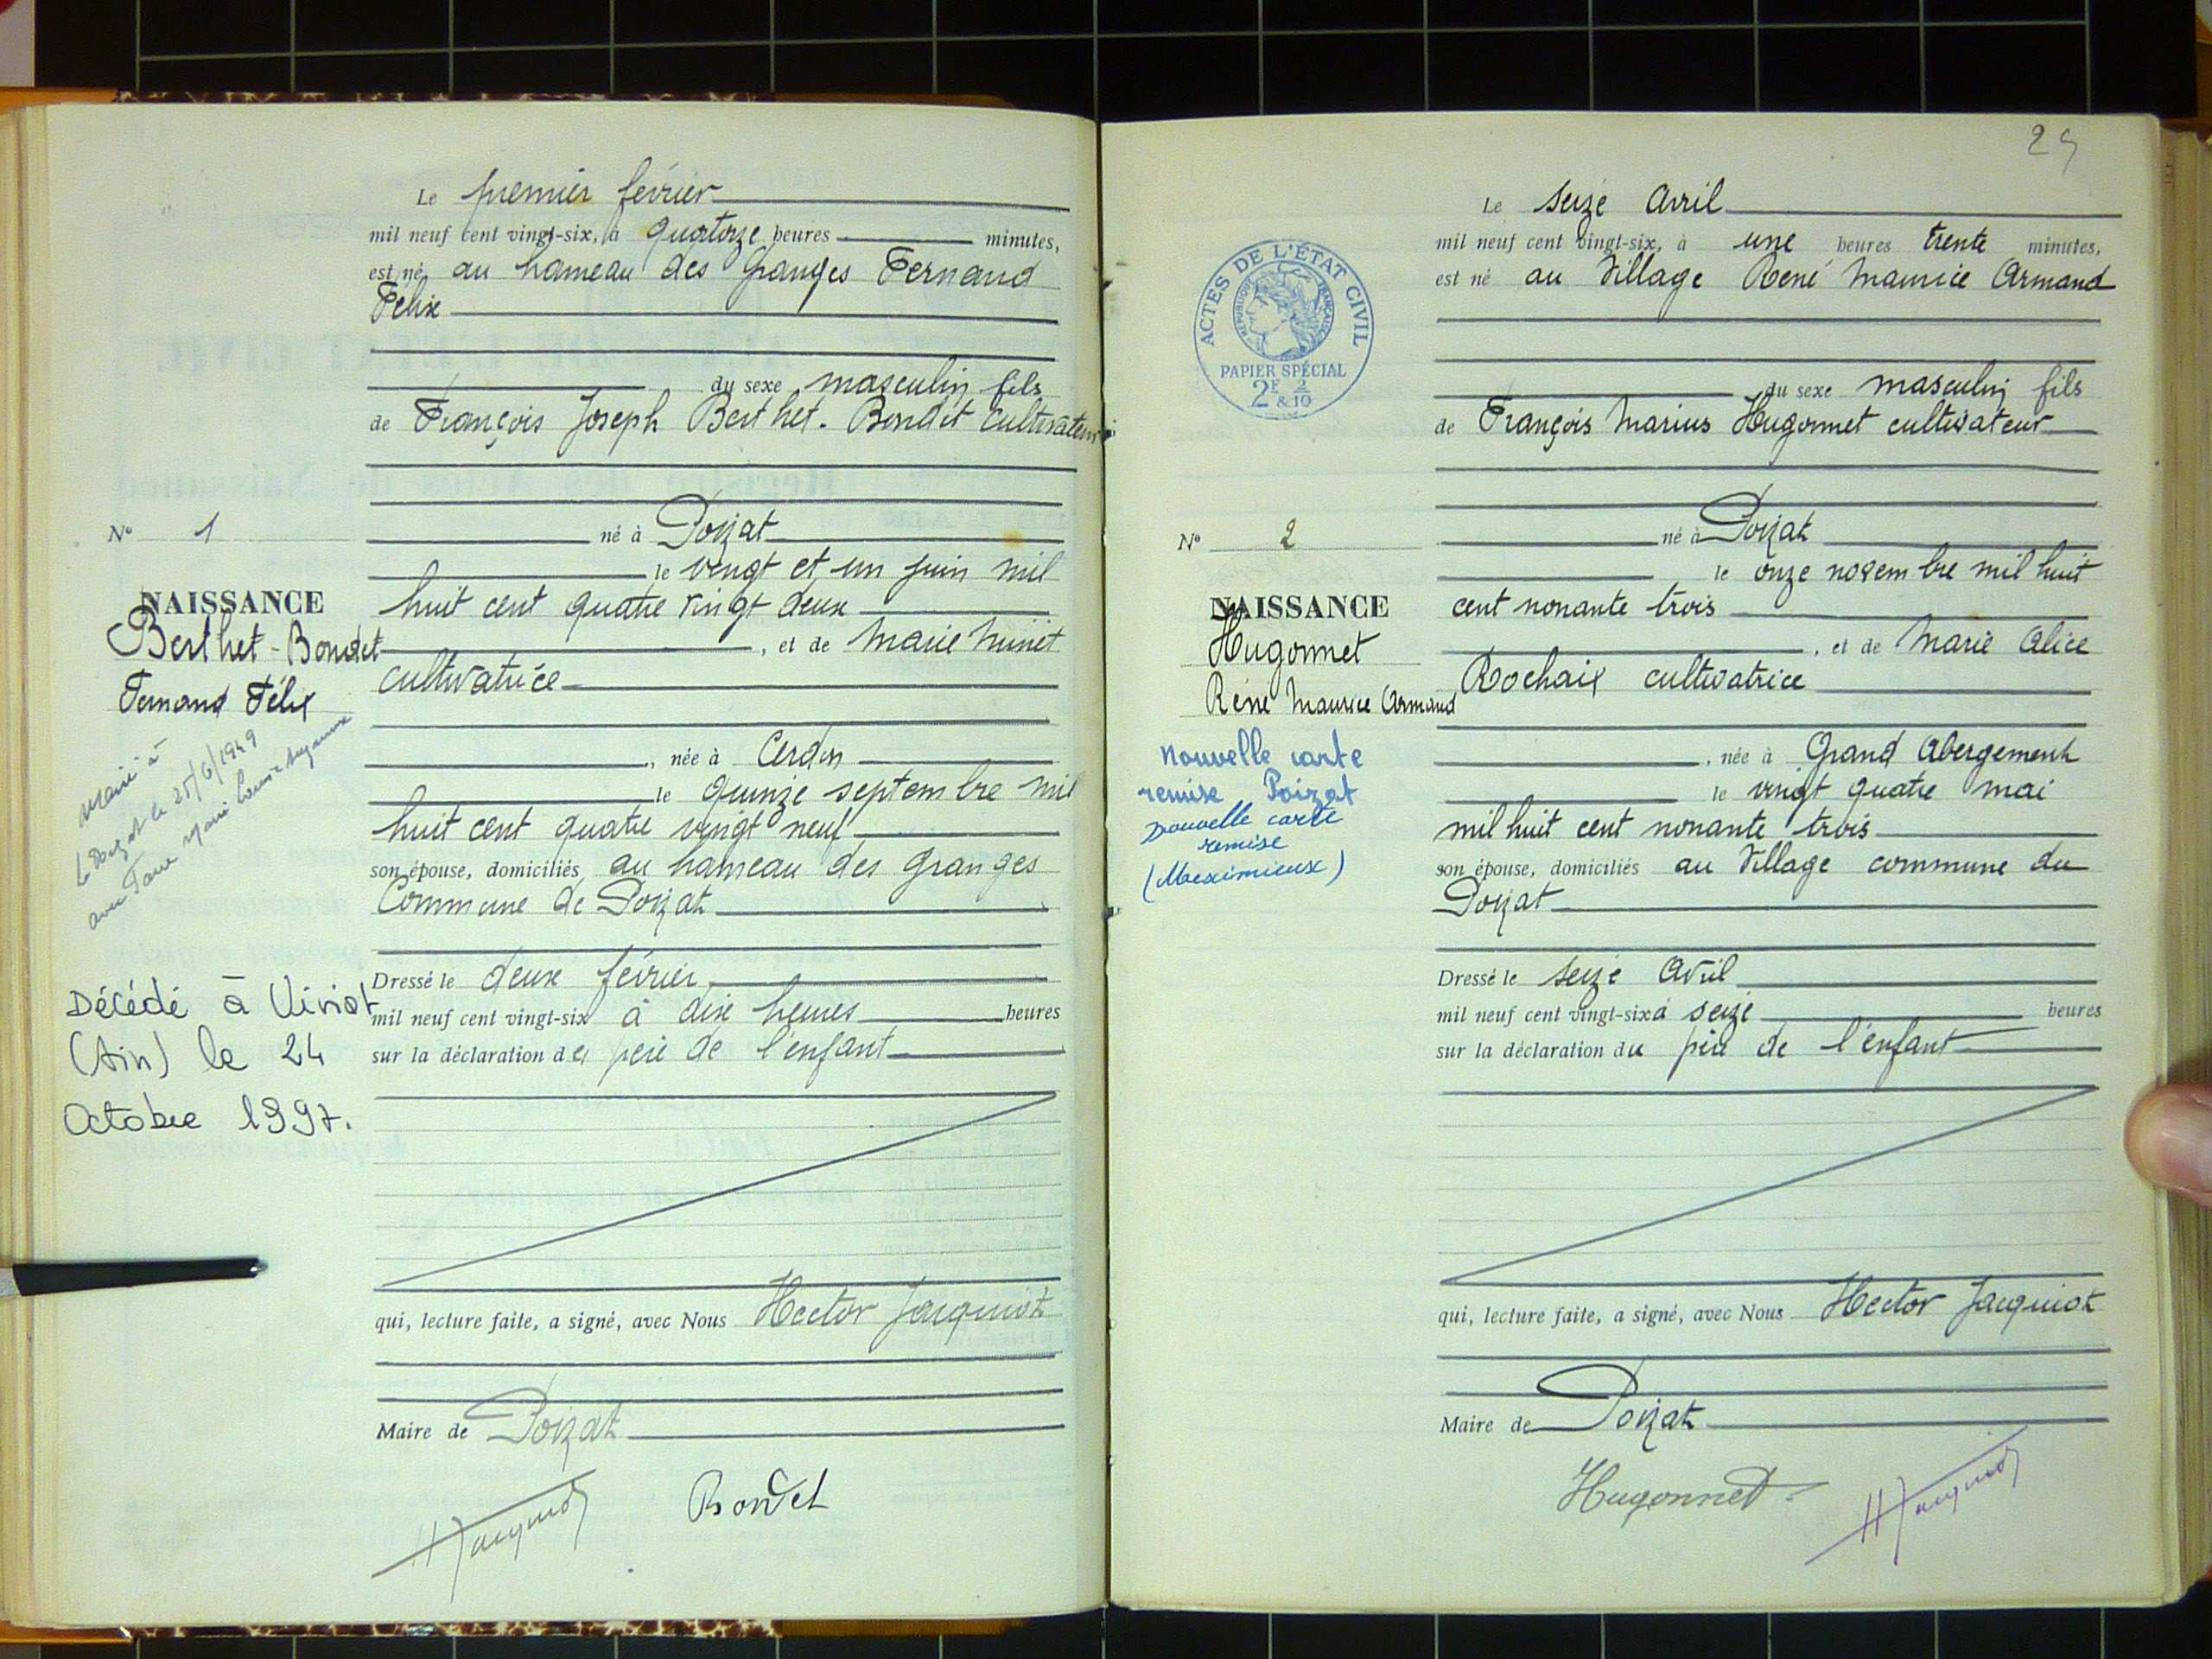 Le premier février
mil neuf cent vingt-six, à quatorze heures minutes,
est né au hameau des Granges Fernand
Félix
du sexe masculin fils
de François Joseph Berthet-Bondet cultivateur
N° 1
né à Poizat
le vingt et un juin mil
NAISSANCE
huit cent quatre vingt deux
Berthet-Bondet
, et de Marie
Fernand Félix
cultivatrice
Marié à
Le Poizat le 25/6/1949
avec
, née à Cerdon
le quinze septembre mil
huit cent quatre vingt neuf
son épouse, domiciliés au hameau des Granges
Commune de Poizat
Dressé le deux février
mil neuf cent vingt-six à dix heures heures
sur la déclaration du père de l'enfant
Décédé à Viriat
(Ain) le 24
Octobre 1997.
qui, lecture faite, a signé, avec Nous Hector Jacquiot
Maire de Poizat
HJacquiot
Bondet
25
Le seize Avril
mil neuf cent vingt-six, à une heures trente minutes,
est né au Village René Maurice Armand
ACTES DE L'ÉTAT CIVIL
RÉPUBLIQUE FRANÇAISE
PAPIER SPÉCIAL
2F & 2/10
du sexe masculin fils
de François Marius Hugonnet cultivateur
N° 2
né à Poizat
le onze novembre mil huit
NAISSANCE
cent nonante trois
Hugonnet
, et de Marie Alice
René Maurice Armand
Rochaix cultivatrice
Nouvelle carte
remise Poizat
nouvelle carte
remise
(Meximieux)
, née à Grand Abergement
le vingt quatre mai
mil huit cent nonante trois
son épouse, domiciliés au Village commune du
Poizat
Dressé le seize Avril
mil neuf cent vingt-six à seize heures
sur la déclaration du père de l'enfant
qui, lecture faite, a signé, avec Nous Hector Jacquiot
Maire de Poizat
Hugonnet
HJacquiot